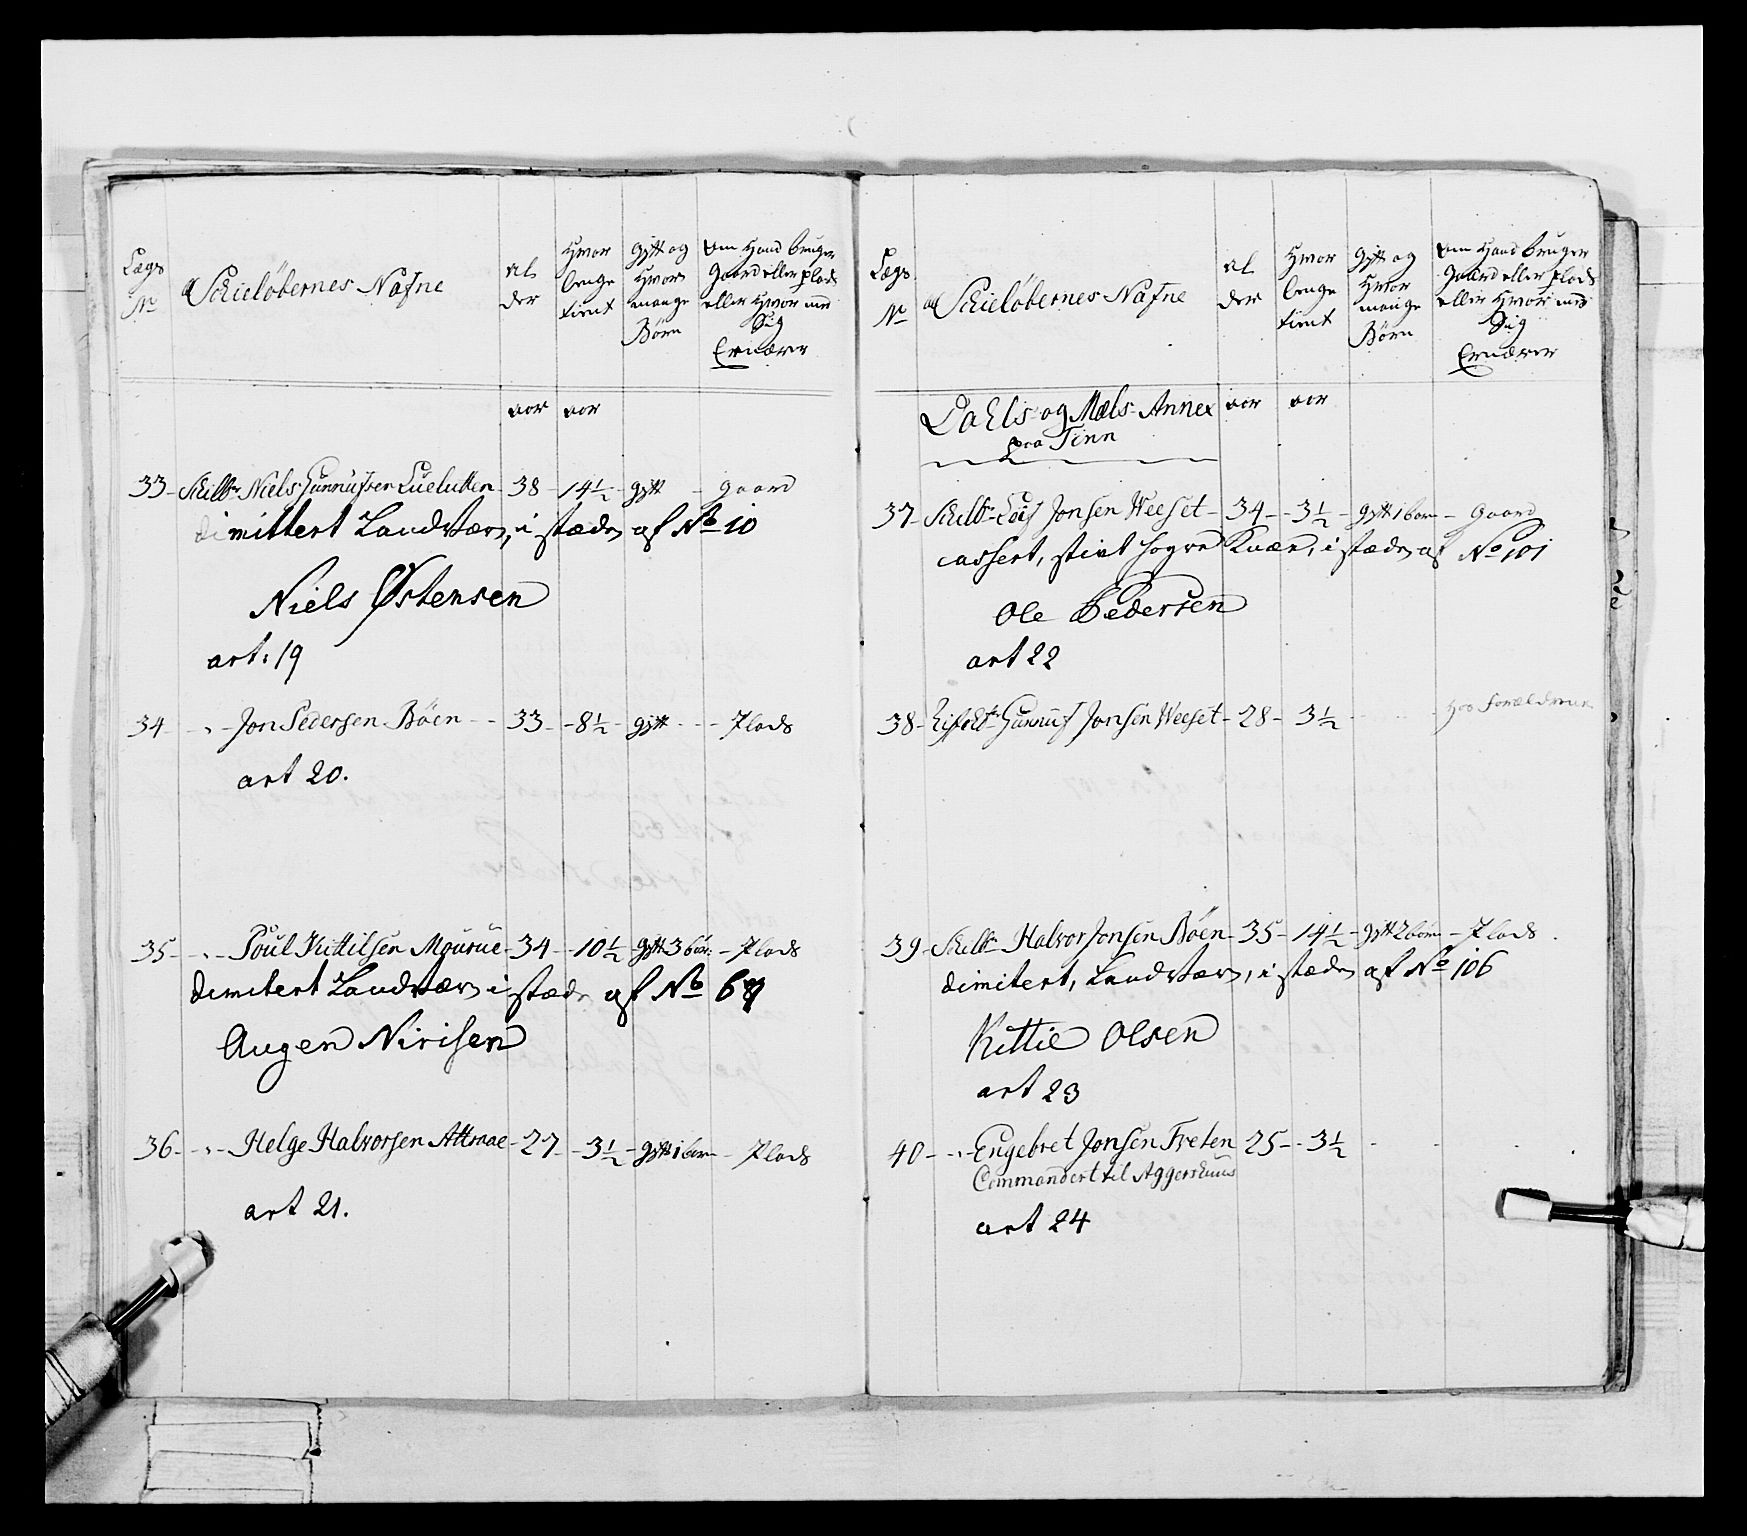 Lægs No
Schieløbernes Nafne
Al der
Hvor lenge tient
gift og Hvor mange Børn
Om Hand bruger Gaard eller Plads eller Hvor med Sig Ernærer
aar aar
33 - Schilbr Niels Gunnufsen - 38 - 14½ - gift - gaard
dimittert Landværn, i stæden af No 10
Niels Østensen
art: 19
34 - " - Jon Pedersen Böen - - 33 - - 8½ - gift - - - Plads
art 20.
35 - " - Poul Kittilsen - 34 - 10½ - gift 3 börn - Plads
dimitert Landværn i stæden af No 67
Augen Nirisen
36 - " - Helge Halvorsen Attraae - 27 - - 3½ - gift 1 barn - Plads
art 21.
Lægs No
Schieløbernes Nafne
Al der
Hvor lenge tient
Gift og Hvor mange Børn
Om Hand bruger Gaard eller Plads eller Hvor med Sig Ernærer
Dahls og Mæls Annex aar aar
fra Tinn
37 - Schilbr Jonsen Weeset - 34 - - 3½ - gift 1 barn - Gaard
cassert, stivt høyre Knæe, i stæden af No 101
Ole Pedersen
art 22
38 - Gunnuf Jonsen Weeset - 28 - 3½ - - - hos Forældrene
39 - Schilbr Halvor Jonsen Böen - 35 - 14½ - gift 2 börn - Plads
dimitert, Landværn, i stæden af No 106
Kittil Olsen
art 23
40 - - " - Engebret Jonsen Freten 25 - - 3½
Commandert til Aggershuus
art 24